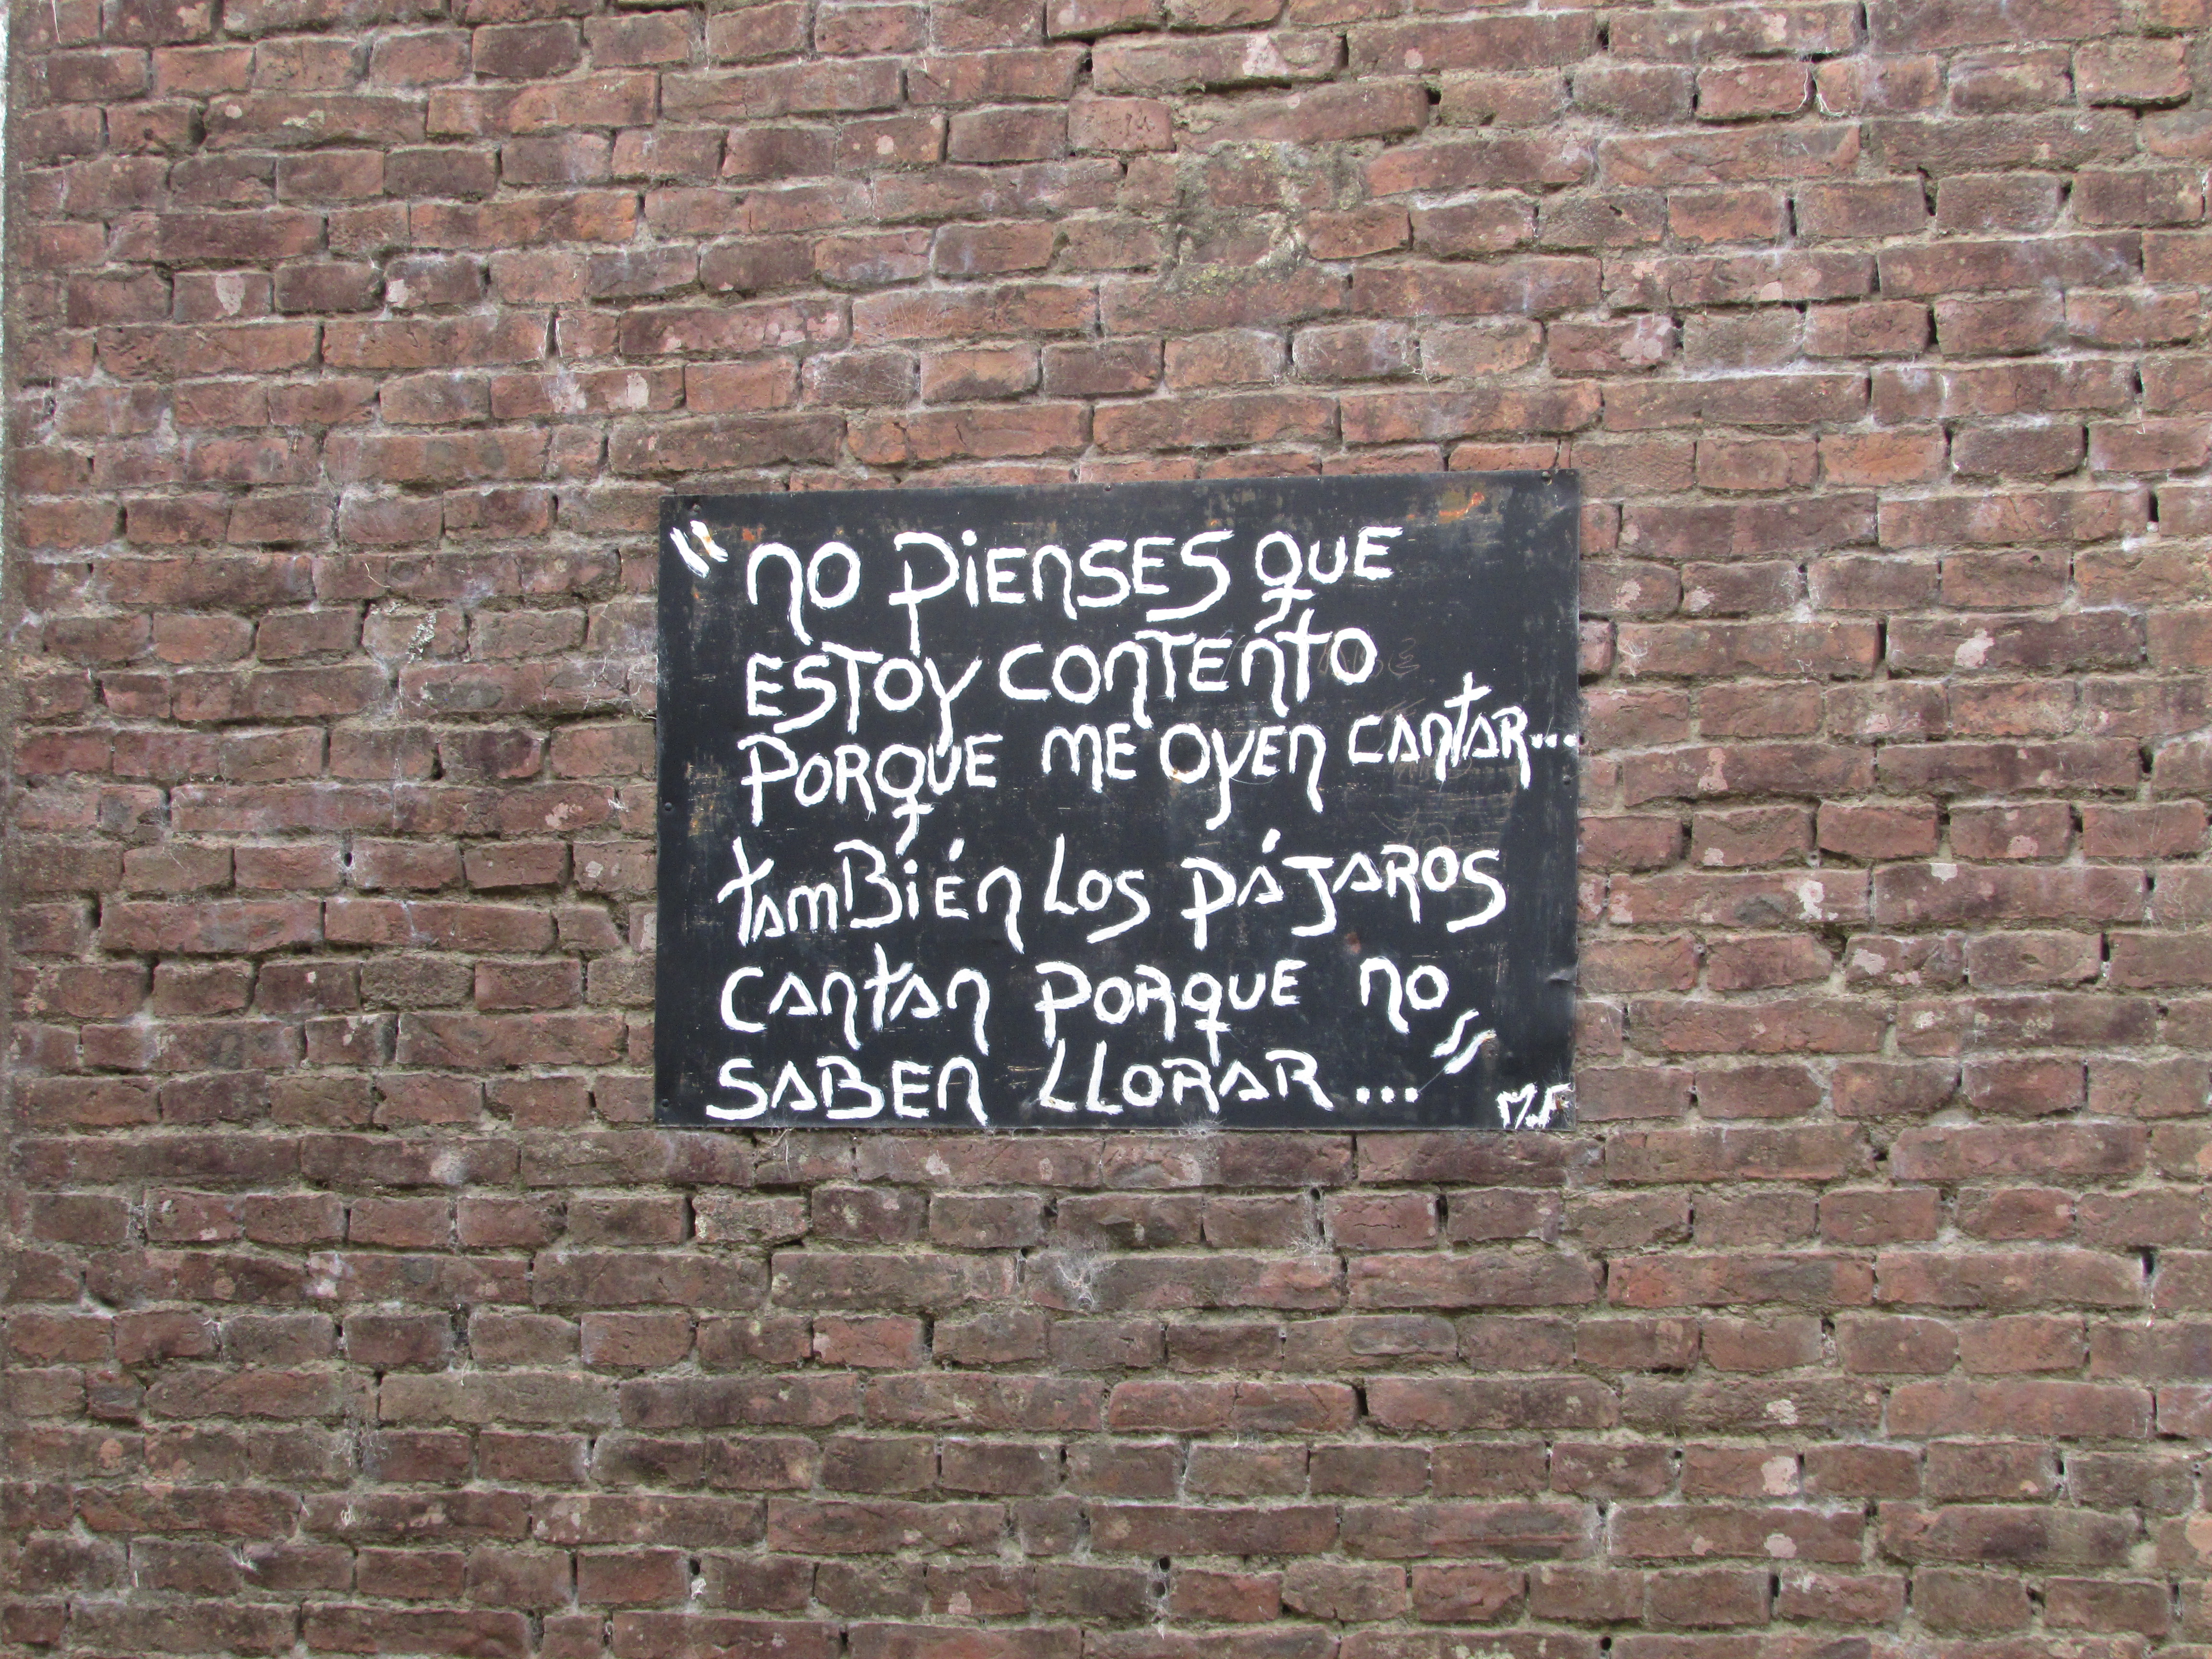 "no PiEnSES QUE
ESTOY CONTENTO
PORQUE ME OYEN CANTAR...
TAMBIÉN LOS PÁJAROS
CANTAN PORQUE NO
SABEN LLORAR..."
M.F